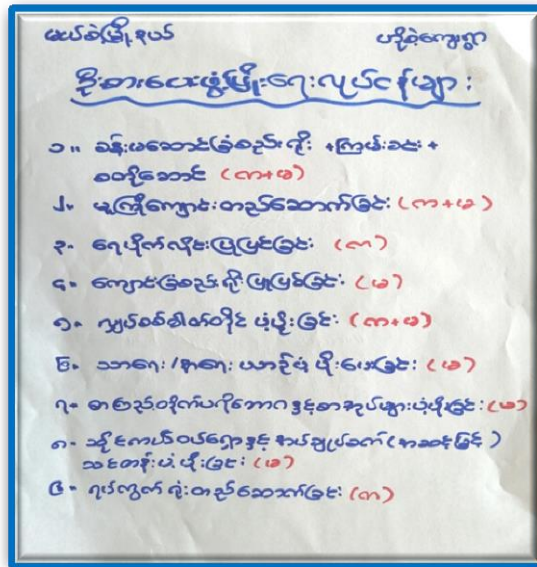 မယ်စဲ့မြို့နယ် ဟိုစဲ့ကျေးရွာ
ဦးစားပေးဖွံ့ဖြိုးရေးလုပ်ငန်းများ
၁။ ခန်းမဆောင်ခြံစည်းရိုး + ကြမ်းခင်း +
စတိုဆောင် (က+မ)
၂။ မူကြိုကျောင်းတည်ဆောက်ခြင်း (က+မ)
၃။ ရေပိုက်လိုင်းပြုပြင်ခြင်း (က)
၄။ ကျောင်းခြံစည်းရိုးပြုပြင်ခြင်း (မ)
၅။ လျှပ်စစ်ဓါတ်တိုင် ပံ့ပိုးခြင်း (က+မ)
၆။ သာရေး/နာရေး ယာဉ်ပံ့ပိုးပေးခြင်း (မ)
၇။ စာကြည့်တိုက်ပရိဘောဂနှင့်စာအုပ်များပံ့ပိုးခြင်း (မ)
၈။ ဆိုင်ကယ်ဝပ်ရှော့နှင့် စက်ချုပ် (အဆင့်မြင့်)
သင်တန်းပံ့ပိုးခြင်း (မ)
၉။ ရပ်ကွက်ရုံးတည်ဆောက်ခြင်း (က)